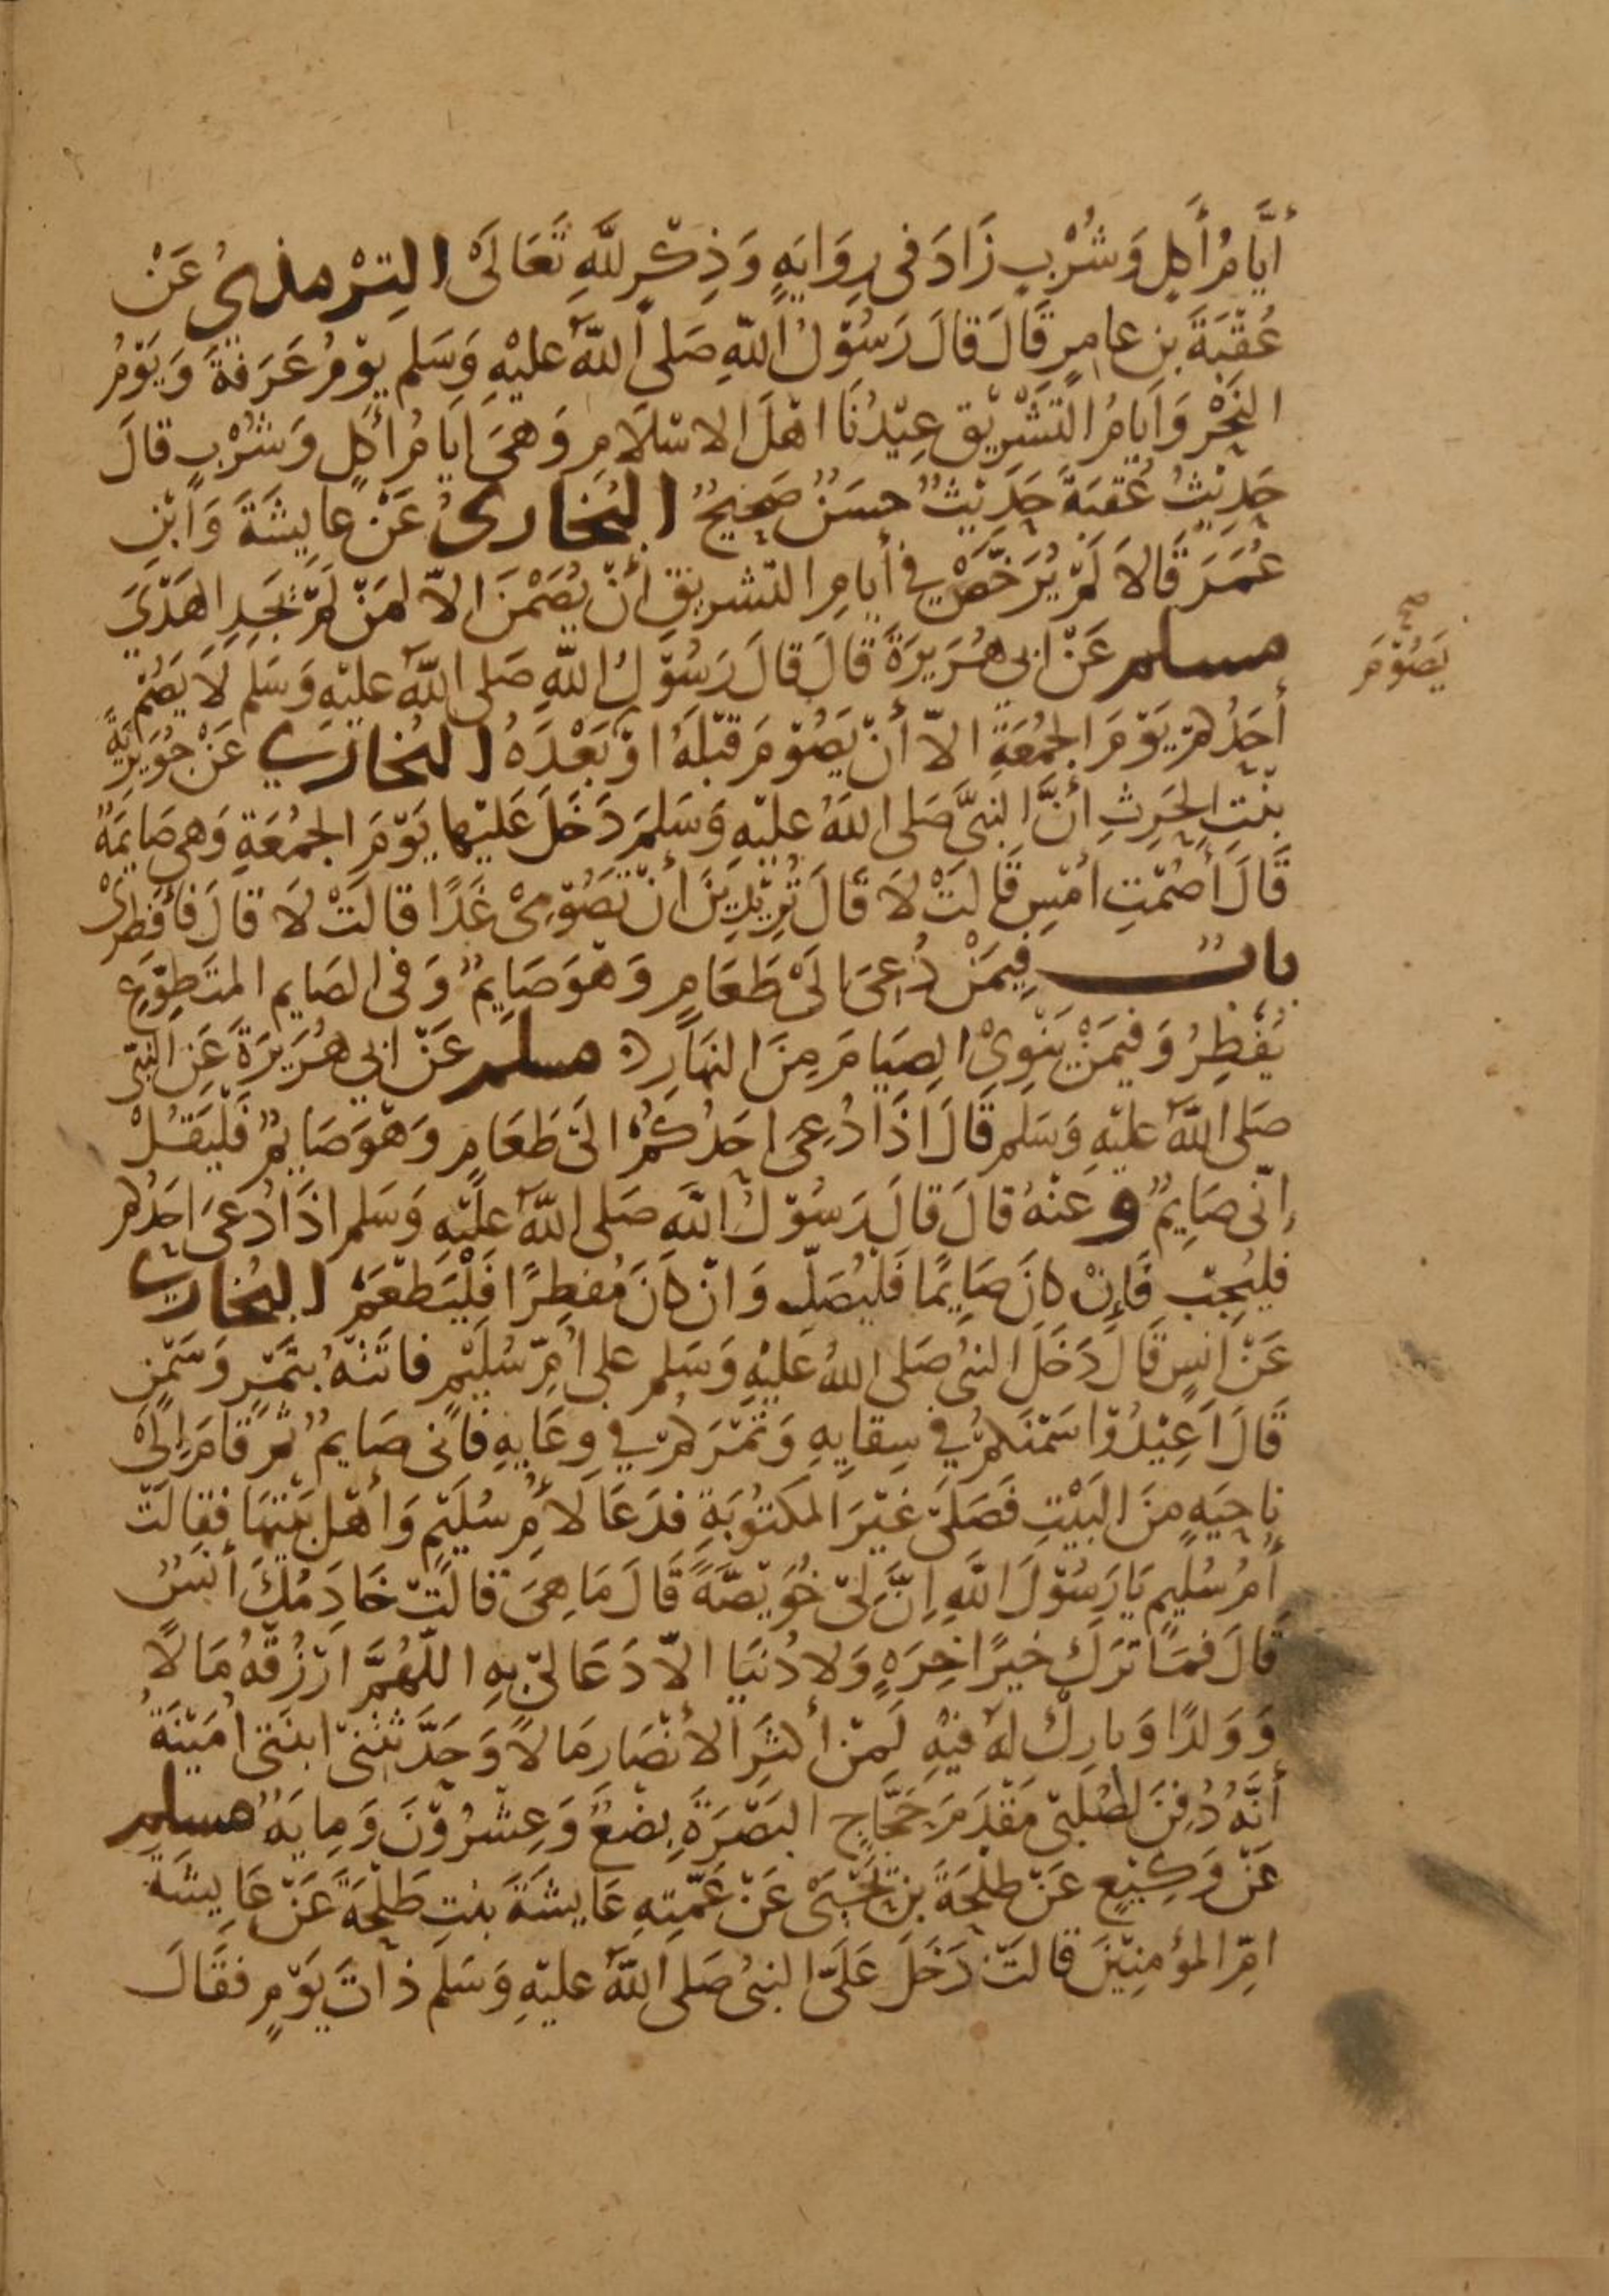 أَيَّامُ أَكلٍ وَشُرْبٍ زَادَ فى رِوَايَةٍ وَذِكْرٍ للَّهِ تَعَالَىْ التِرْمذىُ عَنْ
عُقْبَةَ بن عامرٍ قَالَ قالَ رَسُوْلُ اللّهِ صَلى اللّهُ عليْهِ وَسَلم يوْمُ عَرَفةَ وَيَوْمُ
النَحْرِ وَاَيامُ التَشْرِيْقِ عِيْدُنَا اهْلَ الاسْلَامِ وَهىَ ايَامُ أكلٍ وَشُرْبٍ قالَ
حَدِيْثُ عُقبَةَ حَدِيْثٌ حسَنٌ صَحِيحٌ البُخارىُ عَنْ عايِشَةَ وَابْنِ
عُمَرَ قَالاَ لَمْ يُرَخَّصْ في أيامِ التشريقِ أنْ يُصَمْنَ الاّ لمَنْ لَمْ يَجِدِ الهَدْىَ
مسلم عَنْ ابي هُرَيرَةَ قَالَ قالَ رَسُوْلُ اللّهِ صَلى اللّهُ عليْهِ وَسَلم لَا يَصُمْ
أحَدُكمْ يَوْمَ الجُمُعَةِ الاّ أنْ يَصُوْمَ قبْلَهُ اوْ بَعْدَهُ البُخارى عَنْ جُوَيرِيَةَ
بنْتِ الحَرِثِ أنَّ النبىَّ صَلى اللهُ عليْهِ وَسَلمَ دَخَلَ عَليْها يَوْمَ الجمُعَةِ وَهى صَايمَةٌ
قَالَ أَصُمْتِ امْسِ قَالتْ لاَ قَالَ تُرِيْدِيْنَ أنْ تَصُوْمِىْ غَدًا قالَتْ لَا قالَ فَأفْطِرىْ
بابٌ فِيمَنْ دُعِىَ الَىْ طَعَامٍ وَهْوَ صَايِمٌ وَفى الصَايم المتَطوّعِ
يُفْطِرُ وَفيمَنْ يَنْوِىْ الصِيَامَ مِنَ النهَارِ مسلم عَنْ ابي هُرَيرَةَ عَنِ النبّى
صَلى اللّهُ عليْهِ وَسَلم قَالَ اذَا دُعِىَ احَدُكمُ الىَ طَعَامٍ وَهْوَ صَايمٌ فَلْيَقُلْ
إنّى صَايِمٌ وعَنْهُ قالَ قالَ رَسُوْلُ اللّهِ صَلى اللّهُ عليْهِ وَسَلم اذَا دُعىَ احَدُكم
فليُجِبْ فَإنْ كانَ صَايمًا فَلْيُصَلّ وَانْ كانَ مُفطِرًا فَلْيَطْعَمْ البُخارى
عَنْ انَسٍ قَالَ دَخَلَ النبىُ صَلى اللهُ عليْهِ وَسَلم على اُمّ سُليْمٍ فاتَتْهُ بتَمْرٍ وَسَمْنٍ
قَالَ اَعِيْدُوْا سَمْنَكُمْ في سِقايِهِ وَتَمْرَكمْ في وِعَايِهِ فَانى صَايمٌ ثمَ قَامَ إلَىْ
نِاحِيَةٍ مِنَ البَيْتِ فَصَلىَّ غيْرَ المكتوُبَةِ فدَعَا لاُمِ سُليَمٍ وَأهْلِ بَيْتِهَا فقالَتْ
أمُ سُليمٍ يَا رَسُوْلَ اللّهِ إنَّ لىْ خُوَيْصّةً قَالَ مَا هِىَ قالَتْ خَادِمُكَ أنَسٌ
قَالَ فمَا تَرَكَ خَيرًا خِرَةٍ وَلا دُنيَا الاّ دَعَا لىْ بِهِ اللّهُمَّ ارْزُقهُ مَالًا
وَوَلدًا وَبارِكْ لهُ فيْهِ لَمِنْ أكثَرِ الأنْصَارِ مَالاً وَحَدَّثتْنىْ ابنَتى اُمَيْنَةُ
أنَّهُ دُفِنَ لصُلبىْ مَقْدَمَ حَجَّاجٍ البَصْرَةَ بِضْعٌ وَعِشْرُوْنَ وَمِايَةٌ مسلم
عَنْ وَكِيْعٍ عَنْ طلْحَةَ بن يَحْيَى عَنْ عَمَّتِهِ عَايشَةَ بنتِ طَلْحَةَ عَنْ عَايشَةَ
امّ المؤمنِيْنَ قالَتْ دَخَلَ عَلَىَّ النبىُ صَلى اللّهُ عليْهِ وَسَلم ذاتَ يَوْمٍ فقَالَ
صح
يَصُوْمَ